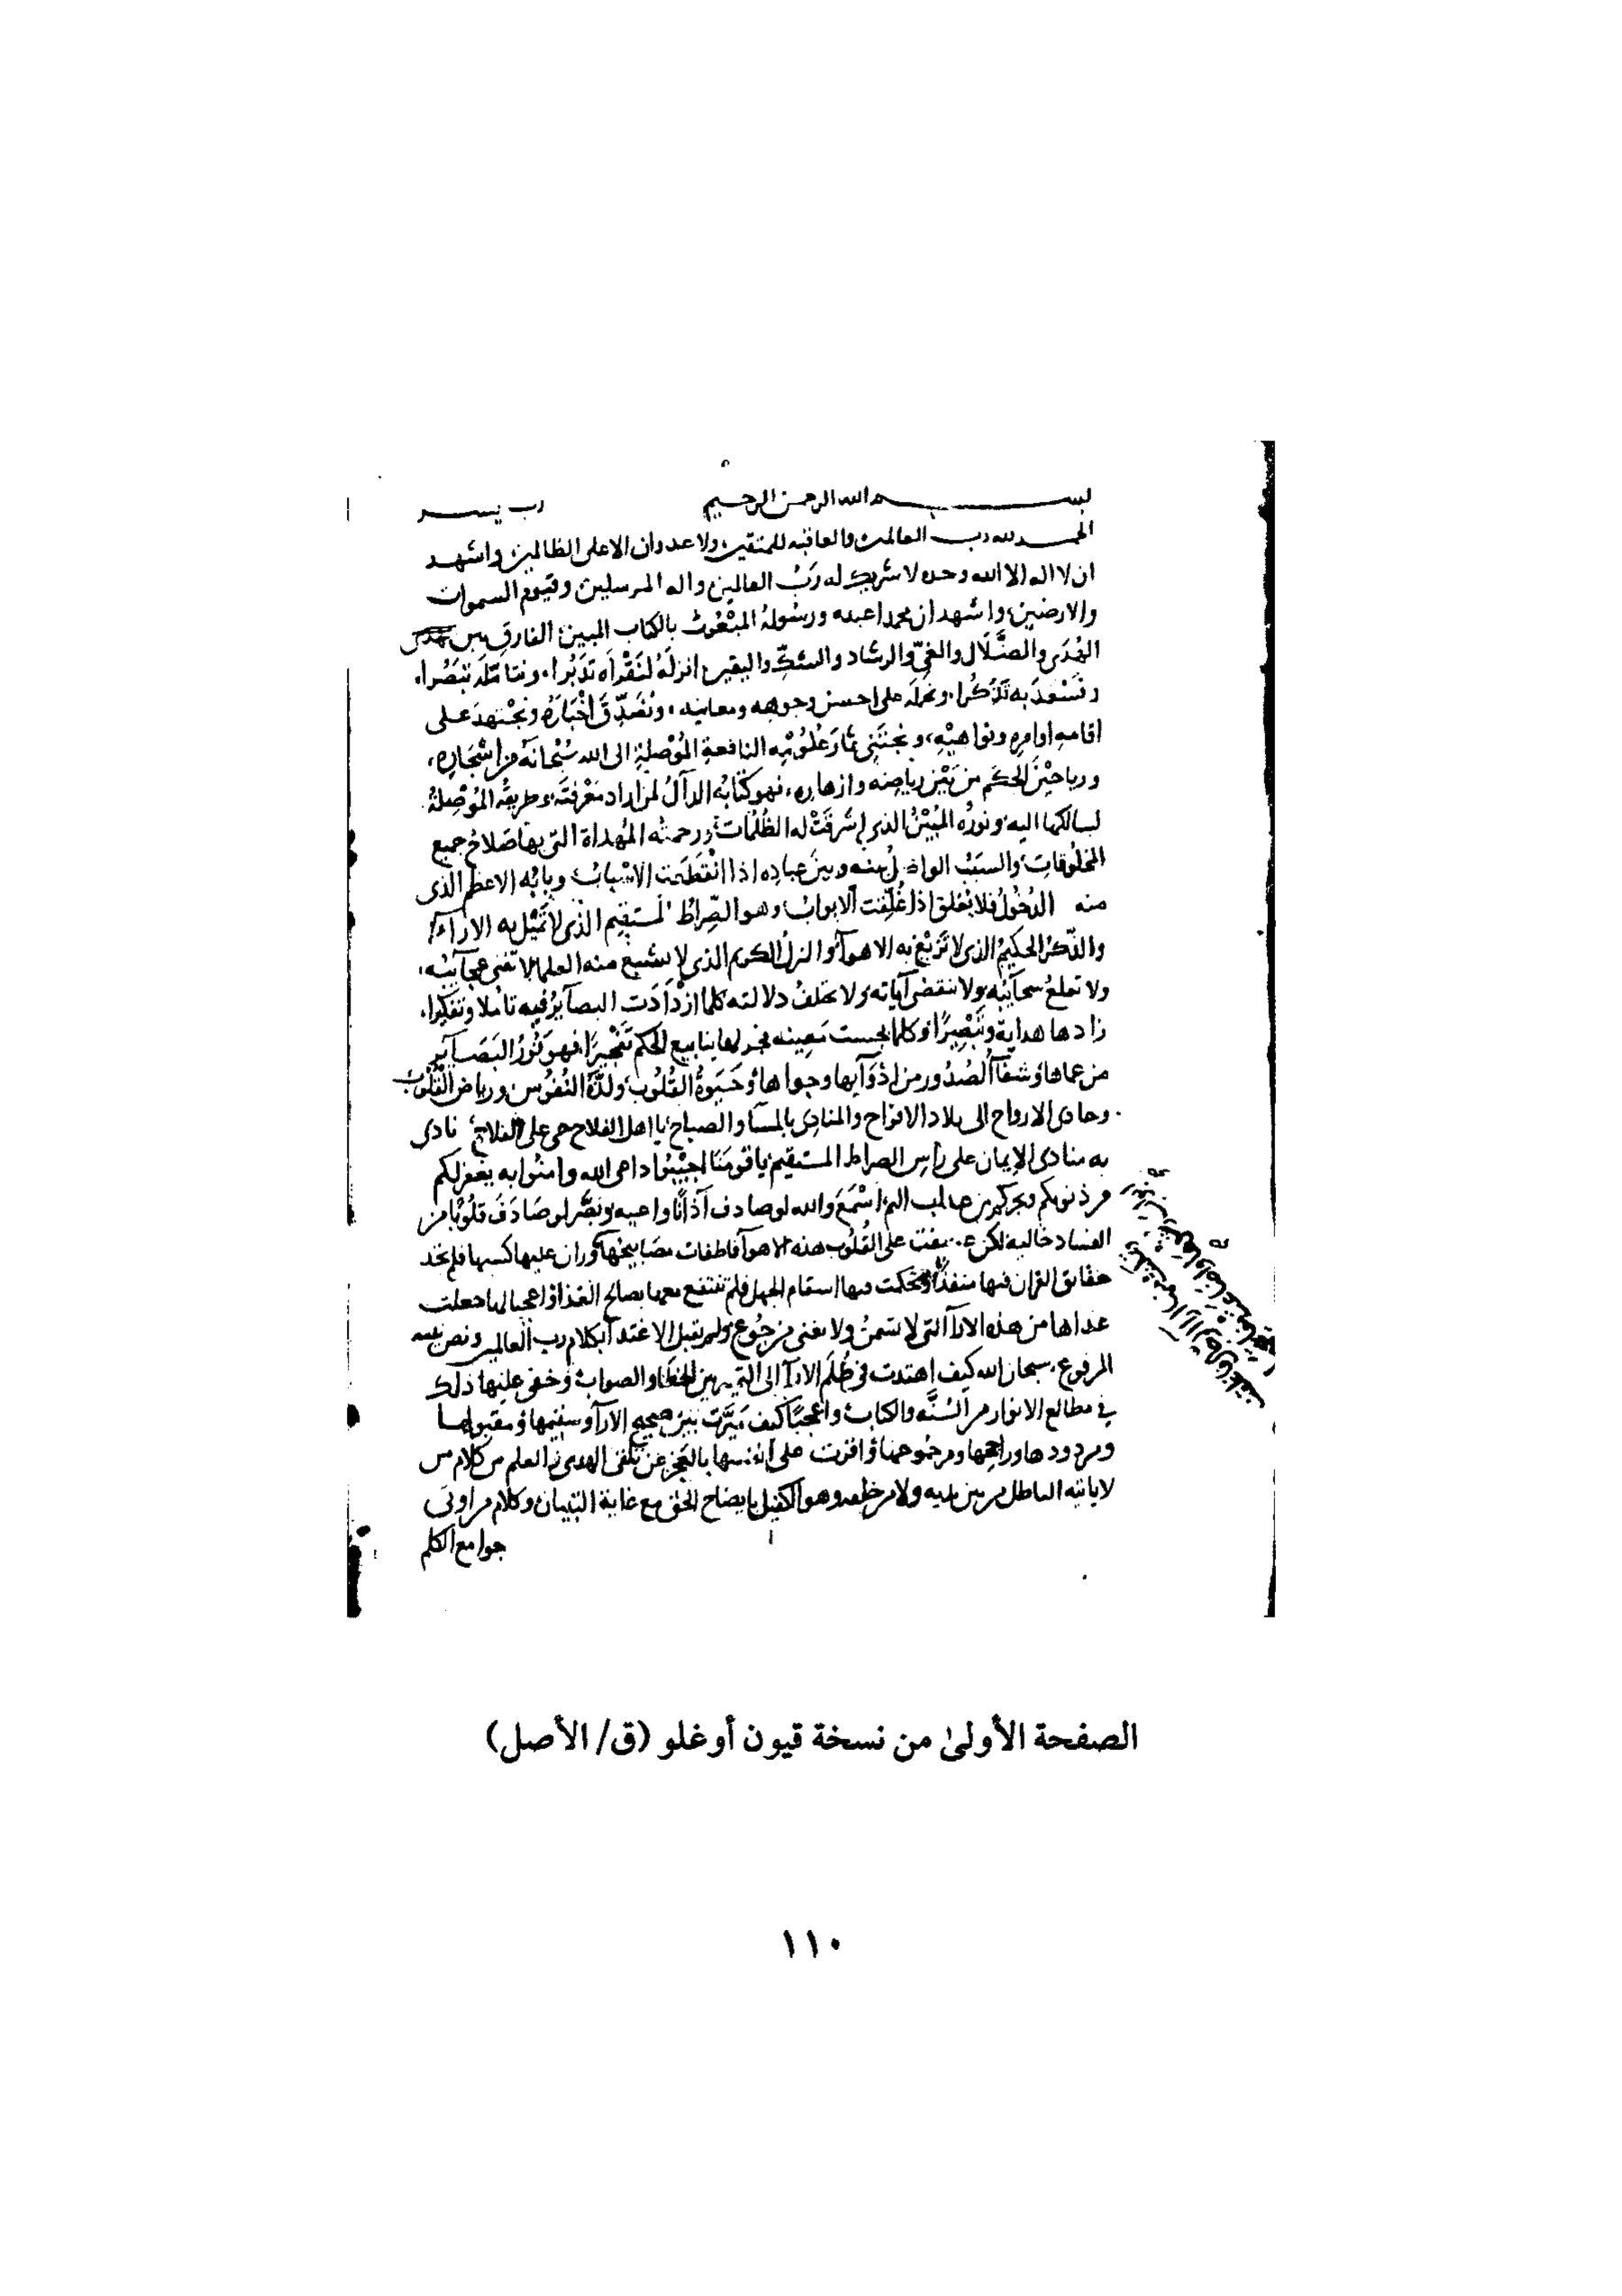 بسم الله الرحمن الرحيم رب يسر
الحمد لله رب العالمين والعاقبه للمتقين ولا عدوان الا على الظالمين واشهد
ان لا اله الا الله وحده لا شريك له رَبُّ العالمين واله المرسلين وقيوم السموات
والارضين واشهد ان محمدا عبده ورسولهُ المبْعُوث بالكتاب المبين الفارق بين
الهُدَى والضَّلَال والغيّ والرشاد والشكّ واليقين انزلَهُ لنَقْرأه تدَبُّرا، ونتامّلَه تبَصُّرا،
ونَسْعدَ به تَذَكُّرا، ونحمله على احسن وجوهه ومعانيه، ونُصَدِّقَ اخْبَارَهُ ونجْتهدَ على
اقامه اوامرِه ونواهيْهِ، ونجتَنِى ثمارَ عُلُوْمِه النافعةِ المُوْصلةِ الى الله سُبْحَانَهُ من اشجَارِه،
ورياحيْنَ الحكَم من بَيْن رياضِه وازهاره، فهو كتَابُه الدآلُّ لمن اراد مَعْرفتَه، وطريقُه المُوْصِلةُ
لسالكها اليه، ونورُه المُبيْنُ الذى اشرقَتْ له الظُلُمَات ورحمتُه المُهداة التى بها صَلاحُ جميع
المخلوقات والسبَبُ الواصلُ بينه وبينَ عباده اذا انْقَطَعَت الاسْبابُ وبابُه الاعظم الذى
منه الدُخُولُ فلا يغلق اذا غُلِّقت الابوابُ وهو الصِّراطُ المستقيم الذى لا تَميْلُ به الاراَء
والذّكرُ الحكيمُ الذى لا تَزيْغُ به الاهوآء والنزلُ الكريم الذى لا يشبع منه العلما لا تفنى عجآئبُه،
ولا تقلعُ سحآئبُه ولا تنقضى آياته ولا تختلفُ دلالته كلما ازْدَادَت البصآئرُ فيه تاملا وتفكيرا،
زادها هداية وتَبْصِيرًا وكلما بجست مَعِينه فجر لها ينابيع الحكم تَفْجيرًا فهو نُورُ البَصَآئر
من عماها وشفآءُ الصُدُور من ادْوَآيها وجواها وحَيَوةُ القُلُوب ولذّةُ النُفُوْس ورياض القُلُوْب
وحادى الارواح الى بلاد الافراح والمنادِى بالمسآ والصباح يا اهل الفلاح حى على الفلاح، نادى
به منادى الايمان على راس الصراط المستقيم يا قومَنا اجيْبُوا داعى الله وامنُوا به يغفر لكم
من ذنوبكم ويجركم من عذاب اليم، اسْمَعَ والله لو صادف آذَانًا واعيه وبَصَّر لو صَادَفَ قلُوْبًا من
الفساد خاليه لكن عصفت على القُلُوب هذه الاهوآ فاطفات مصَابيحَها وران عليها كسبها فلم تجد
حقائق القران فيها منفذًا وتحكمت فيها اسقام الجهل فلم تنتفع معها بصالح الغذا واعجبا لها جعلت
غداها من هذه الارآ التى لا تسمنُ ولا تغنى من جُوْعٍ ولم تقبل الاغتدآ بكلام رب العالمين ونص نبيه
المرفوع، سبحان الله كيف اهتدت فى ظُلَم الارآ الى التمييز بين الخطَا والصواب وخفى عليْها ذلك
فى مطالع الانوار من السُنَّه والكتاب واعجبًا كيف مَيَّزت بين صحيح الارآ وسقيمها ومقبولها
ومردودها وراجحها ومرجُوحها واقرت على انفسها بالعَجز عن تلقى الهدى والعلم من كلام من
لا ياتيه الباطل من بين يديه ولا من خلفه وهو الكفيل بايضاح الحق مع غاية التبيان وكلام من اوتى
جوامع الكلم
الصفحة الأولىٰ من نسخة قيون أوغلو (ق/ الأصل)
١١٠